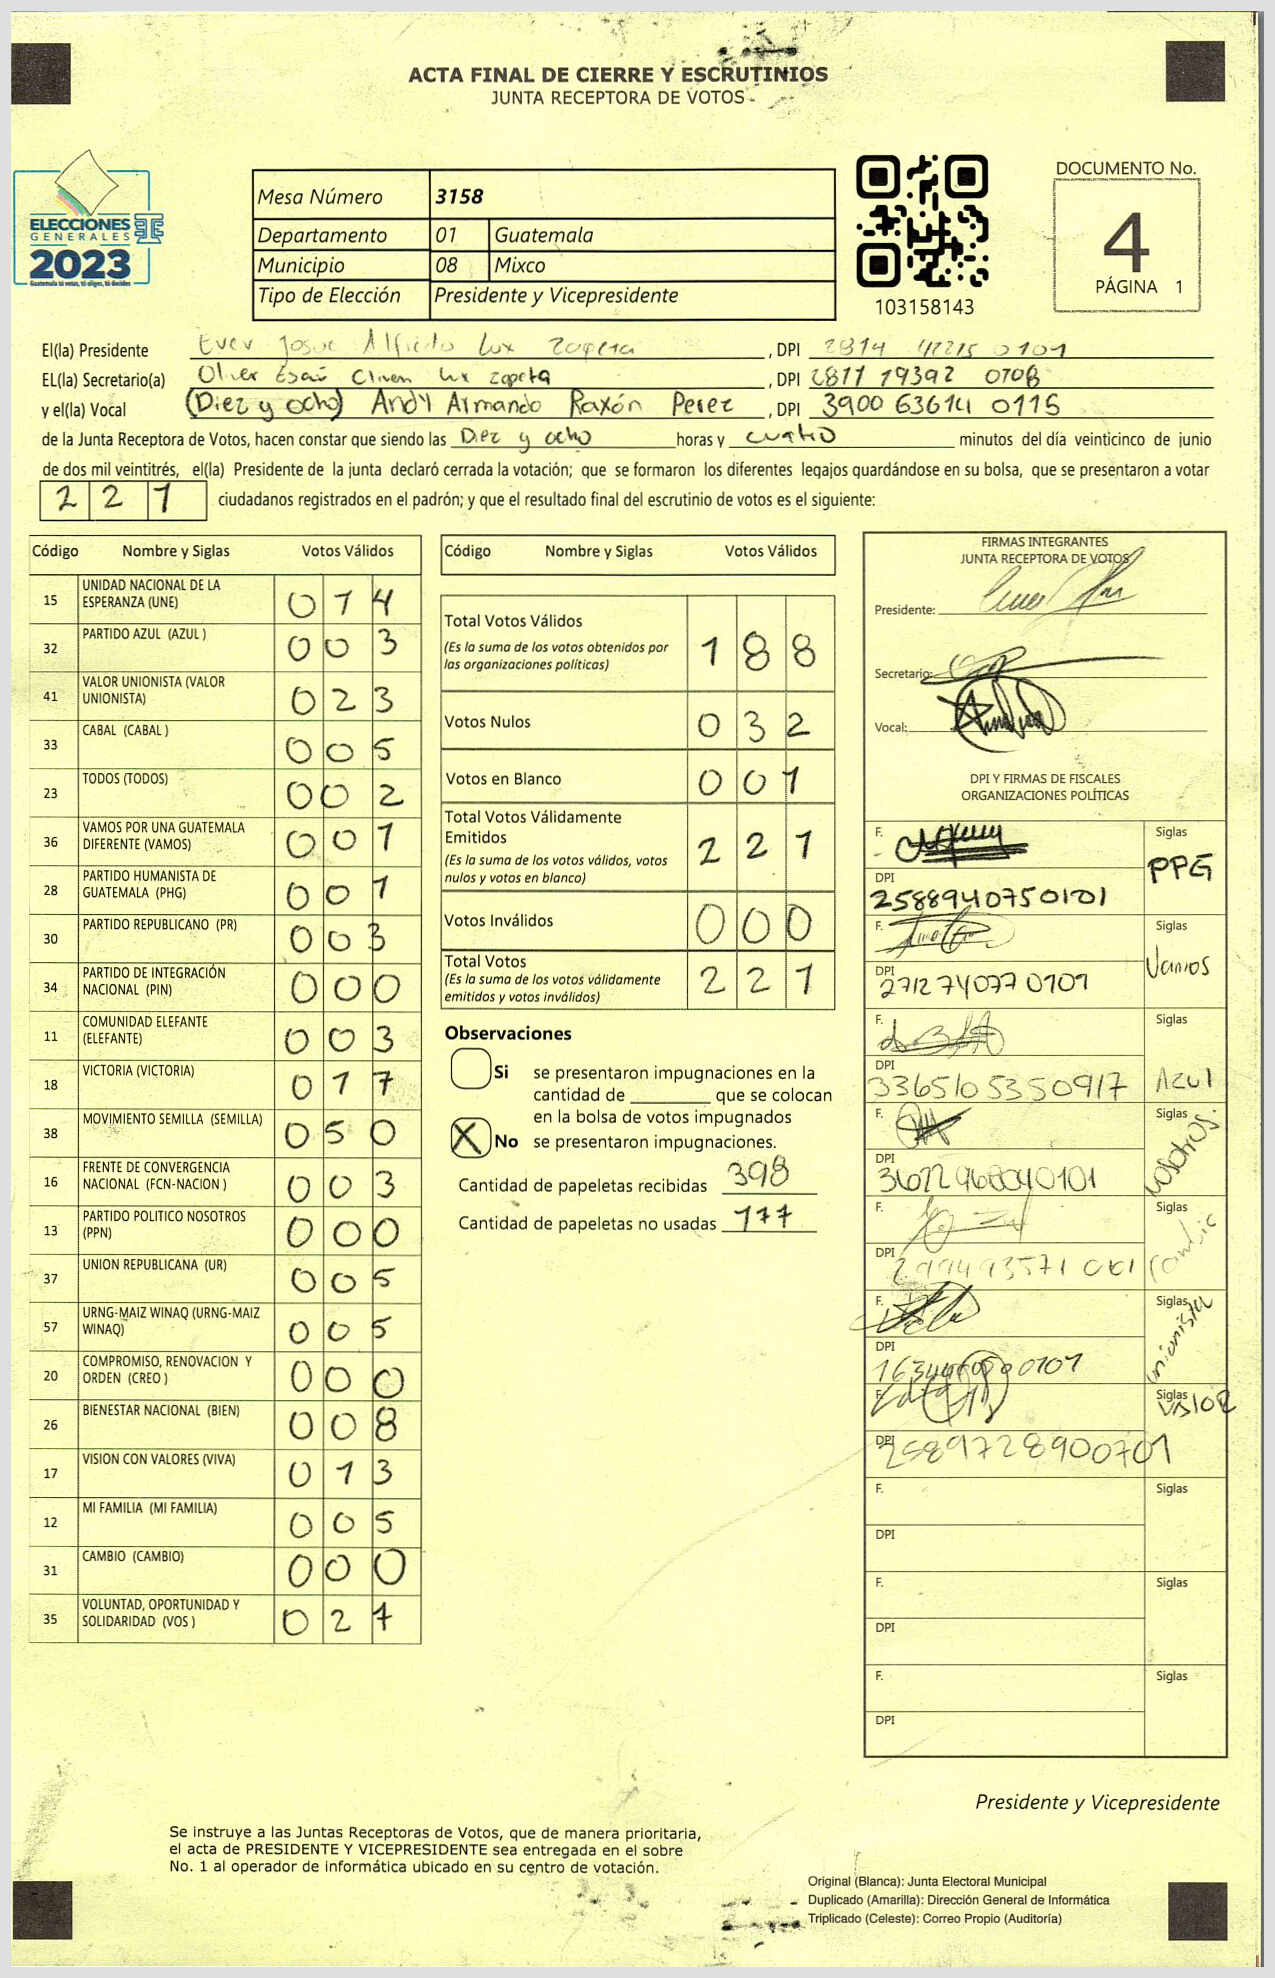 ACTA FINAL DE CIERRE Y ESCRUTINIOS
JUNTA RECEPTORA DE VOTOS
ELECCIONES
GENERALES
2023
Guatemala tú votas, tú eliges, tú decides
Mesa Número 3158
Departamento 01 Guatemala
Municipio 08 Mixco
Tipo de Elección Presidente y Vicepresidente
103158143
DOCUMENTO No.
4
PÁGINA 1
El(la) Presidente Ever Josue Alfredo Lux Zapeta, DPI 2814 0101
EL(la) Secretario(a) Lux Zapeta, DPI 2811 19392 0108
y el(la) Vocal (Diez y ocho) Andy Armando Raxón Perez, DPI 3900 63614 0115
de la Junta Receptora de Votos, hacen constar que siendo las Diez y ocho horas y cuatro minutos del día veinticinco de junio
de dos mil veintitrés, el(la) Presidente de la junta declaró cerrada la votación; que se formaron los diferentes legajos quardándose en su bolsa, que se presentaron a votar
221 ciudadanos registrados en el padrón; y que el resultado final del escrutinio de votos es el siguiente:
Código Nombre y Siglas Votos Válidos
15 UNIDAD NACIONAL DE LA ESPERANZA (UNE) 014
32 PARTIDO AZUL (AZUL ) 003
41 VALOR UNIONISTA (VALOR UNIONISTA) 023
33 CABAL (CABAL ) 005
23 TODOS (TODOS) 002
36 VAMOS POR UNA GUATEMALA DIFERENTE (VAMOS) 001
28 PARTIDO HUMANISTA DE GUATEMALA (PHG) 001
30 PARTIDO REPUBLICANO (PR) 003
34 PARTIDO DE INTEGRACIÓN NACIONAL (PIN) 000
11 COMUNIDAD ELEFANTE (ELEFANTE) 003
18 VICTORIA (VICTORIA) 017
38 MOVIMIENTO SEMILLA (SEMILLA) 050
16 FRENTE DE CONVERGENCIA NACIONAL (FCN-NACION ) 003
13 PARTIDO POLITICO NOSOTROS (PPN) 000
37 UNION REPUBLICANA (UR) 005
57 URNG-MAIZ WINAQ (URNG-MAIZ WINAQ) 005
20 COMPROMISO, RENOVACION Y ORDEN (CREO ) 000
26 BIENESTAR NACIONAL (BIEN) 008
17 VISION CON VALORES (VIVA) 013
12 MI FAMILIA (MI FAMILIA) 005
31 CAMBIO (CAMBIO) 000
35 VOLUNTAD, OPORTUNIDAD Y SOLIDARIDAD (VOS ) 027
Código Nombre y Siglas Votos Válidos
Total Votos Válidos 188
(Es la suma de los votos obtenidos por
las organizaciones políticas)
Votos Nulos 032
Votos en Blanco 001
Total Votos Válidamente
Emitidos 221
(Es la suma de los votos válidos, votos
nulos y votos en blanco)
Votos Inválidos 000
Total Votos 221
(Es la suma de los votos válidamente
emitidos y votos inválidos)
Observaciones
Si se presentaron impugnaciones en la
cantidad de ________ que se colocan
en la bolsa de votos impugnados
X No se presentaron impugnaciones.
Cantidad de papeletas recibidas 398
Cantidad de papeletas no usadas 177
FIRMAS INTEGRANTES
JUNTA RECEPTORA DE VOTOS
Presidente:
Secretario:
Vocal:
DPI Y FIRMAS DE FISCALES
ORGANIZACIONES POLÍTICAS
F. Siglas PPG
DPI 2588940750101
F. Siglas Vamos
DPI 2712740770101
F. Siglas Azul
DPI 3365105350917
F. Siglas Nosotros
DPI 36722968040101
F. Siglas Cambio
DPI
F. Siglas Unionista
DPI
F. Siglas Valor
DPI 2589728900701
F. Siglas
DPI
F. Siglas
DPI
F. Siglas
DPI
Presidente y Vicepresidente
Se instruye a las Juntas Receptoras de Votos, que de manera prioritaria,
el acta de PRESIDENTE Y VICEPRESIDENTE sea entregada en el sobre
No. 1 al operador de informática ubicado en su centro de votación.
Original (Blanca): Junta Electoral Municipal
Duplicado (Amarilla): Dirección General de Informática
Triplicado (Celeste): Correo Propio (Auditoría)